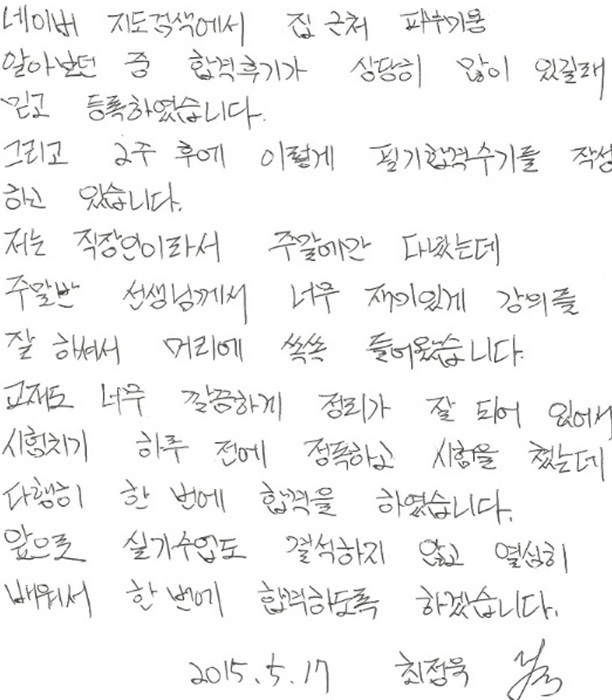 네이버 지도검색에서 집 근처
알아보던 중 합격후기가 상당히 많이 있길래
믿고 등록하였습니다.
그리고 2주 후에 이렇게 필기합격수기를 작성
하고 있습니다.
저는 직장인이라서 주말에만 다녔는데
주말반 선생님께서 너무 재미있게 강의를
잘 하셔서 머리에 쏙쏙 들어왔습니다.
교재도 너무 깔끔하게 정리가 잘 되어 있어서
시험치기 하루 전에 정독하고 시험을 쳤는데
다행히 한 번에 합격을 하였습니다.
앞으로 실기수업도 결석하지 않고 열심히
배워서 한 번에 합격하도록 하겠습니다.
2015.5.17 최정욱